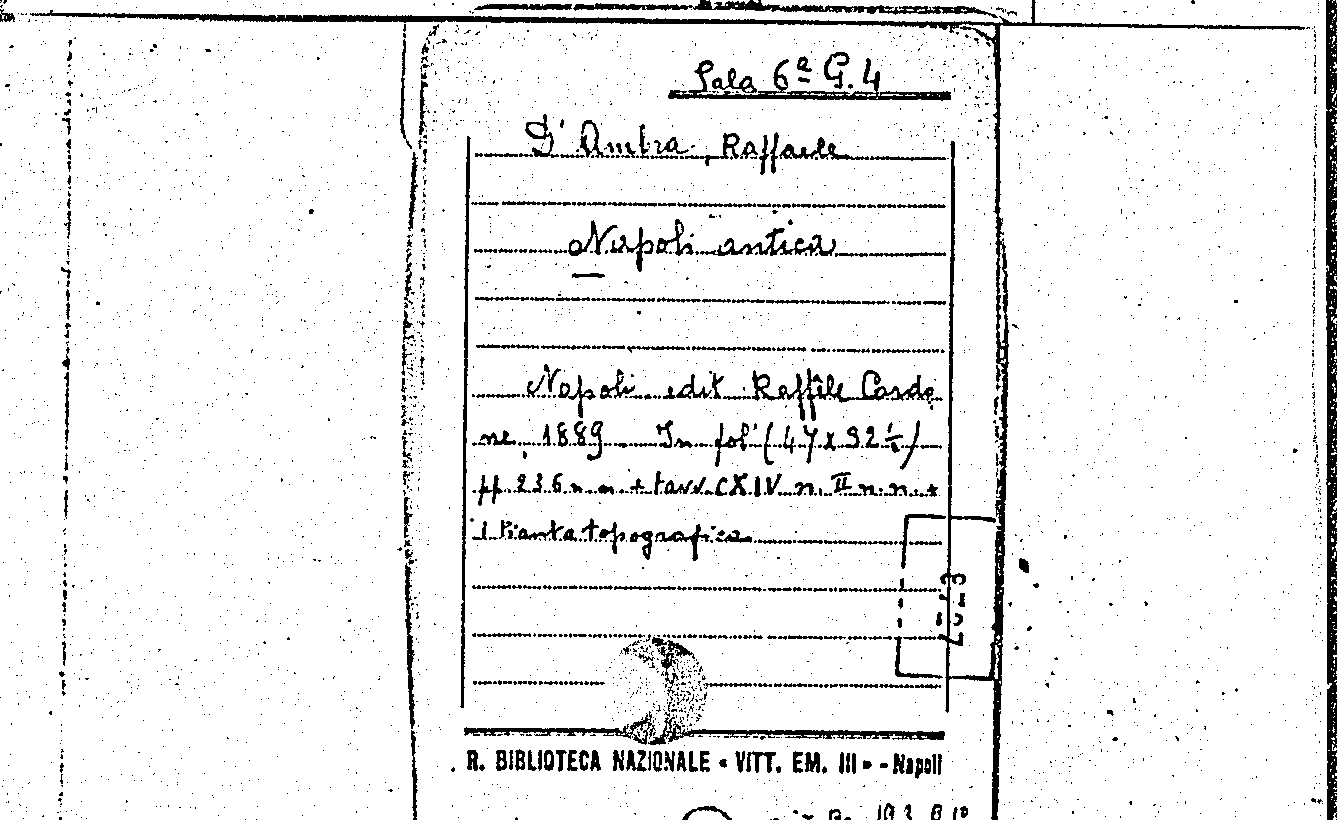 Sala 6ª G.4
D'Ambra, Raffaele
Napoli antica
Napoli, edit Raffele Cardo
ne, 1889 In fol' (47x32½)
pp 236 n n + tavv. CXIV n. II n.n. +
1 Pianta topografica
R. BIBLIOTECA NAZIONALE « VITT. EM. III » - Napoli